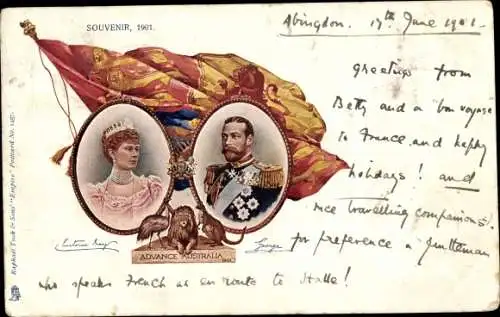 SOUVENIR, 1901.
Abingdon. 17th June 1901.
Greetings from
Betty and a "bon voyage"
to France, and happy
holidays! and
nice travelling companions.
for preference a gentleman
who speaks French as en route to Halle!
Victoria Mary
George
ADVANCE AUSTRALIA
Raphael Tuck & Sons' "Empire" Postcard No.